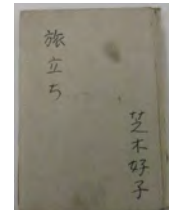 旅立ち
芝木好子